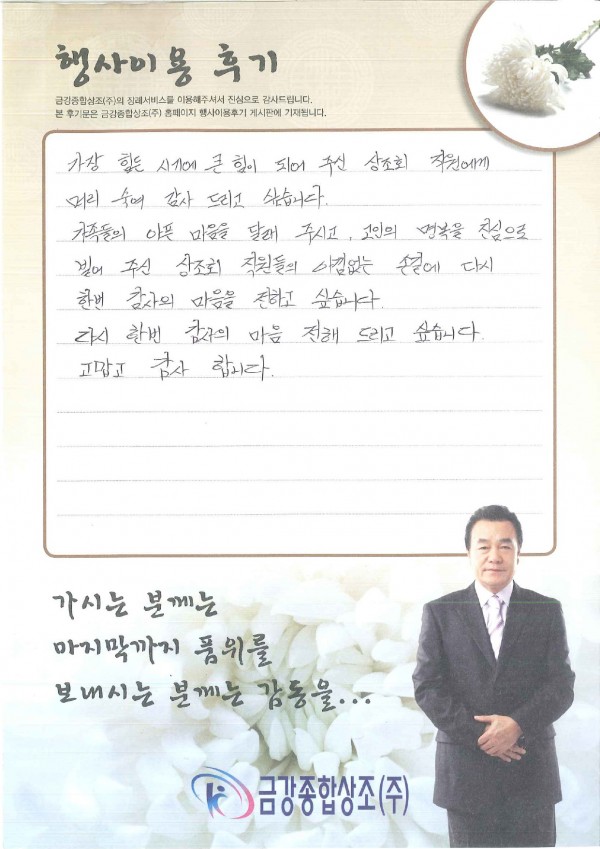 행사이용 후기
금강종합상조(주)의 장례서비스를 이용해주셔서 진심으로 감사드립니다.
본 후기문은 금강종합상조(주) 홈페이지 행사이용후기 게시판에 기재됩니다.
가장 힘든 시기에 큰 힘이 되어 주신 상조회 직원에게
머리 숙여 감사 드리고 싶습니다.
가족들의 아픈 마음을 달래 주시고, 고인의 명복을 진심으로
빌어 주신 상조회 직원들의 아낌없는 손결에 다시
한번 감사의 마음을 전하고 싶습니다.
다시 한번 감사의 마음 전해 드리고 싶습니다.
고맙고 감사 합니다.
가시는 분께는
마지막까지 품위를
보내시는 분께는 감동을...
금강종합상조(주)